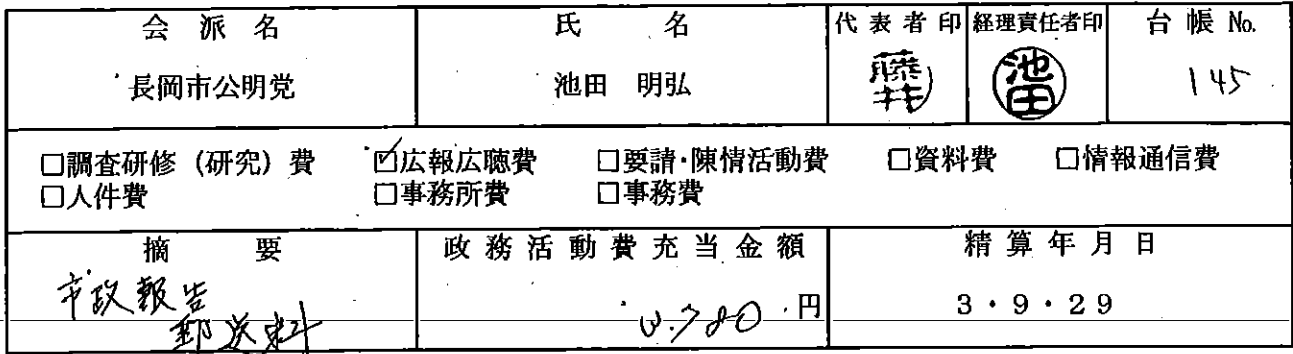 会派名 氏名 代表者印 経理責任者印 台帳 No.
長岡市公明党 池田 明弘 藤井 池田 145
□調査研修（研究）費 ☑広報広聴費 □要請・陳情活動費 □資料費 □情報通信費
□人件費 □事務所費 □事務費
摘要 政務活動費充当金額 精算年月日
市政報告
郵送料 3.780円 3・9・29